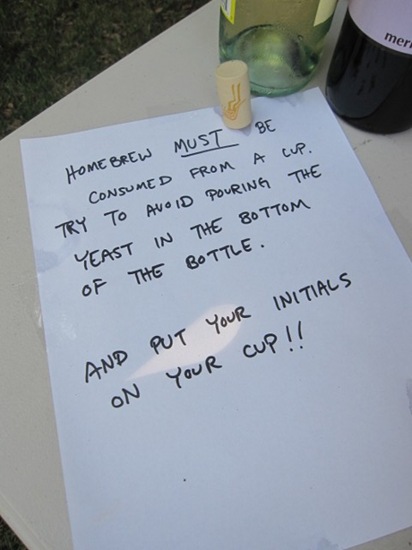 HOMEBREW MUST BE
CONSUMED FROM A CUP.
TRY TO AVOID POURING THE
YEAST IN THE BOTTOM
OF THE BOTTLE.
AND PUT YOUR INITIALS
ON YOUR CUP!!
mer